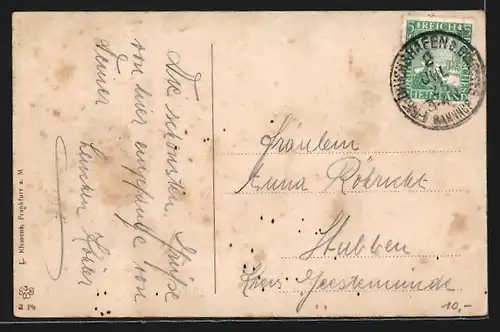 Die schönsten Grüße
von hier empfange von
Deiner
L. Klement, Frankfurt a. M.
5 REICH 5
BAHNHOF
Fräulein
Anna Röhricht
Stubben
Kreis Geestemünde
10,-